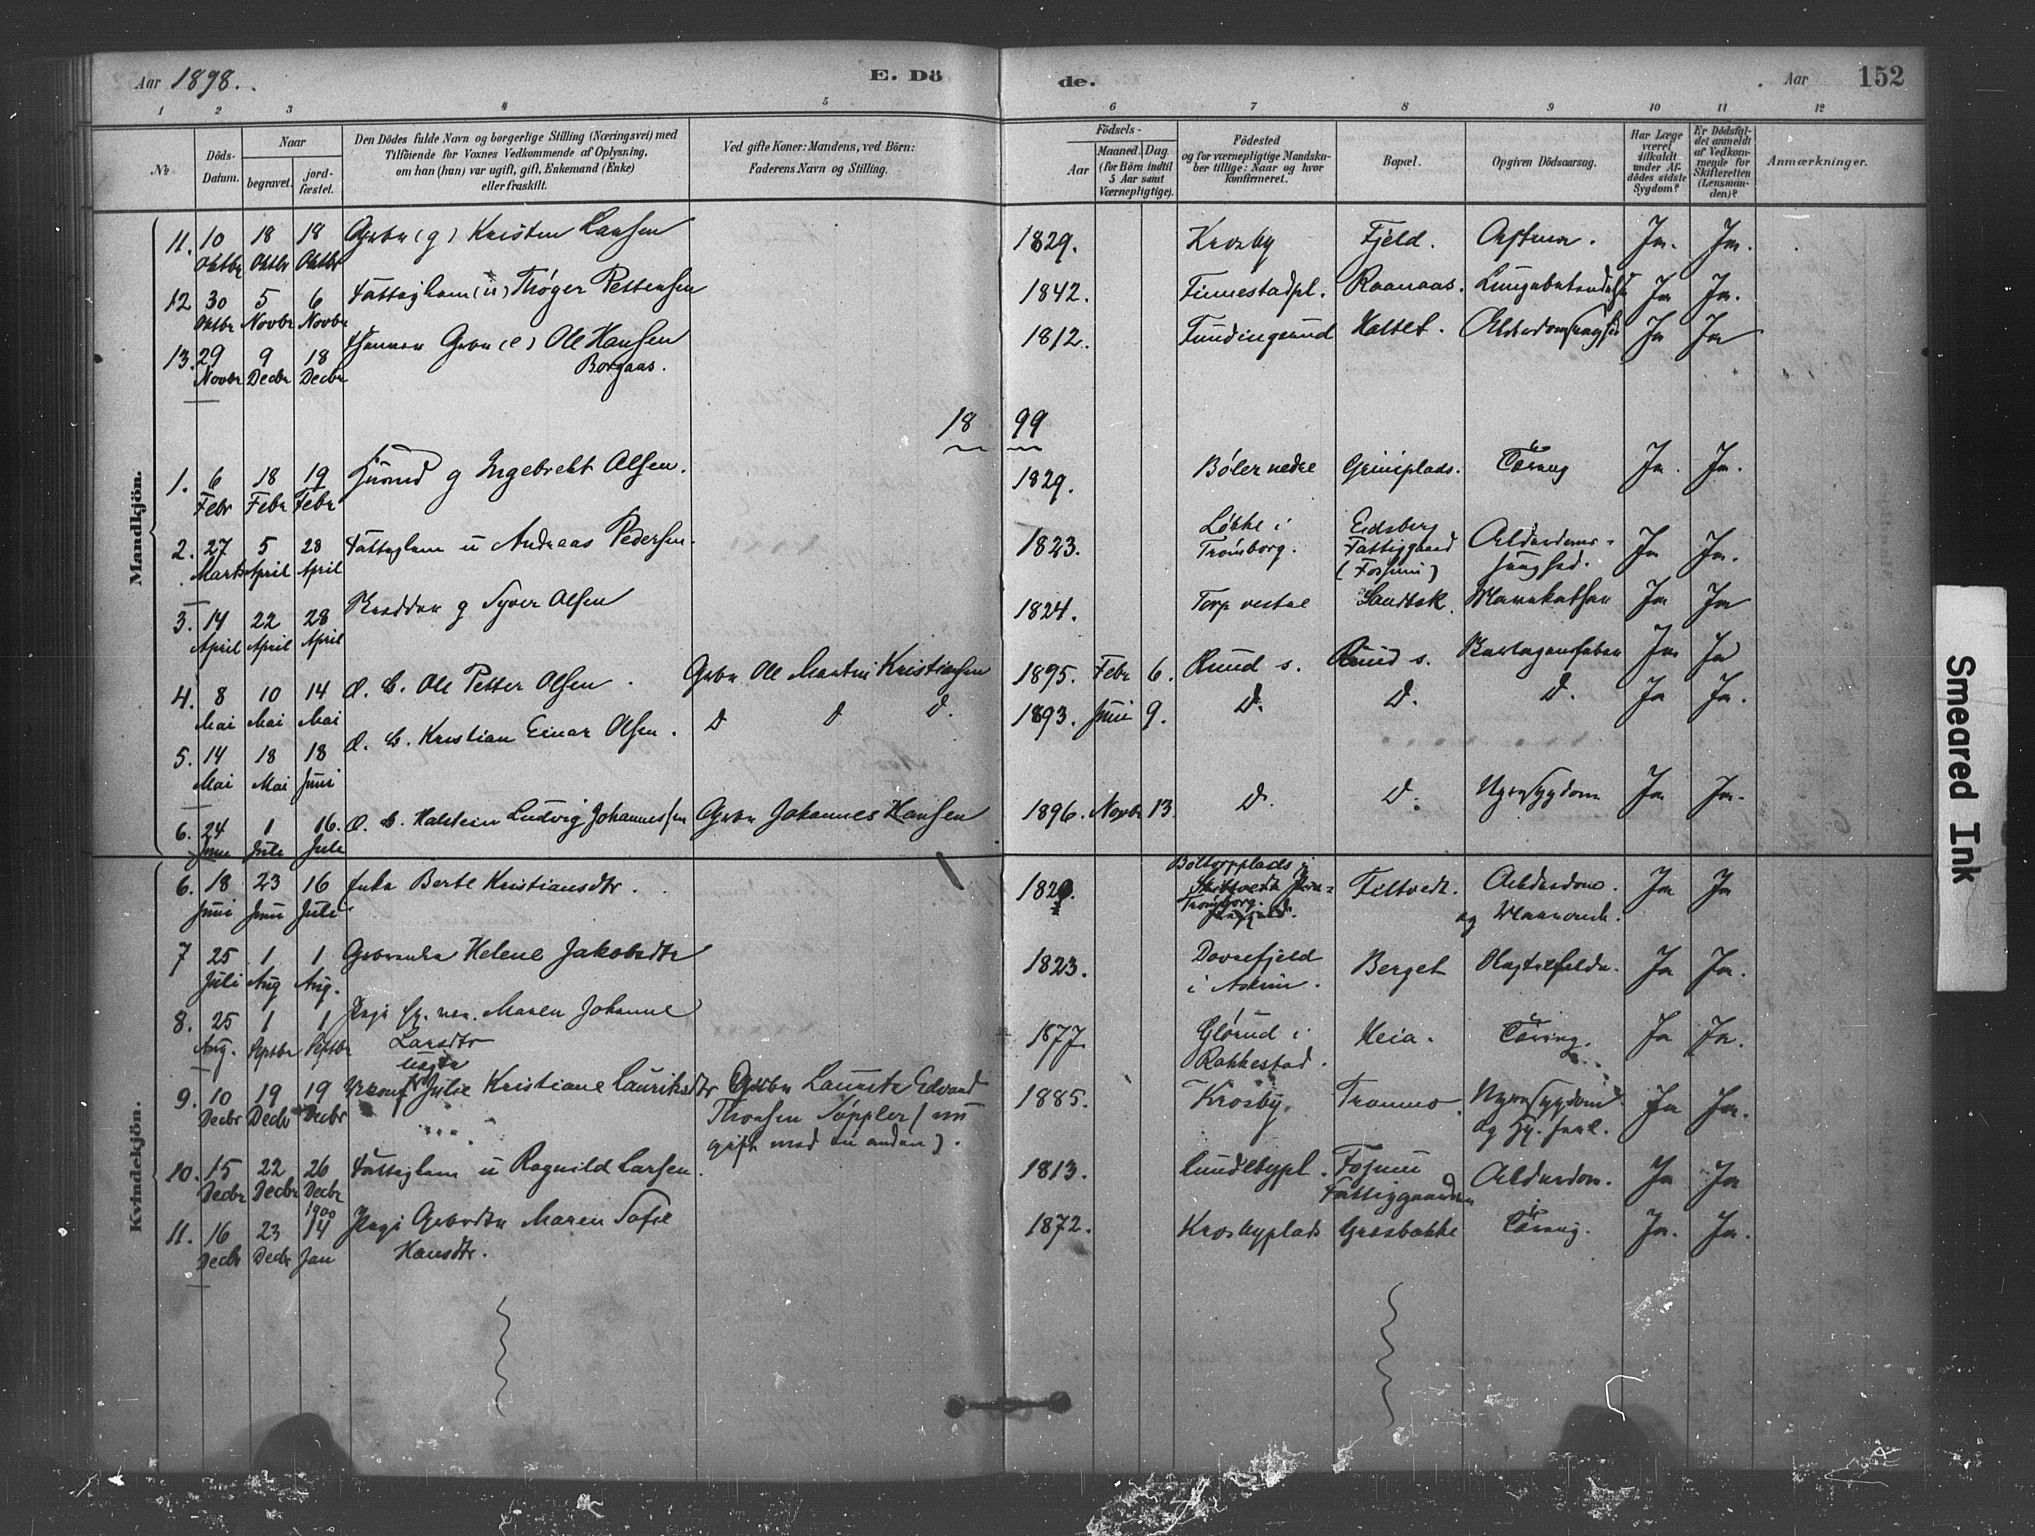 Aar 1898.
E. Dö
de.
Aar
152
1 2 3 4 5 6 7 8 9 10 11 12
№
Döds-
Datum.
Naar
begravet.
jord-
fæstet.
Den Dödes fulde Navn og borgerlige Stilling (Næringsvei) med
Tilföiende for Voxnes Vedkommende af Oplysning,
om han (hun) var ugift, gift, Enkemand (Enke)
eller fraskilt.
Ved gifte Koner: Mandens, ved Börn:
Faderens Navn og Stilling.
Födsels-
Aar
Maaned.
Dag.
(for Börn indtil
5 Aar samt
Værnepligtige).
Födested
og for værnepligtige Mandska-
ber tillige: Naar og hvor
konfirmeret.
Bopæl.
Opgiven Dödsaarsag.
Har Læge
været
tilkaldt
under Af-
dödes sidste
Sygdom?
Er Dödsfal-
det anmeldt
af Vedkom-
mende for
Skifteretten
(Lensman-
den)?
Anmærkninger.
Mandkjön.
11. 10 18 18 Gbr (g) Kristen Larsen 1829. Krosby Fjeld. Astma. Ja. Ja.
Oktbr Oktbr Oktbr
12 30 5 6 Fattiglem (u) Thøger Pettersen 1842. Finnestadpl. Raanaas. Ja Ja.
Oktbr Novbr Novbr
13. 29 9 18 Gbr (e) Ole Hansen 1812. Hattet. Ja Ja
Novbr Decbr Decbr Borgaas.
18 99
1. 6 18 19 Husmd g Ingebrekt Olsen. 1829. Bøler nedre Griniplads. Tæring Ja. Ja.
Febr Febr Febr
2. 27 5 28 Fattiglem u Andreas Pedersen. 1823. Løkke i Trømborg. Eidsberg Fattiggaard (Fossum) Alderdoms- Ja Ja.
Marts April April
3. 14 22 28 g Syver Olsen 1824. Torp vestre Sandbæk Mavekathar Ja Ja
April April April
4. 8 10 14 Æ. B. Ole Petter Olsen. Gbr Ole Martin Kristiansen 1895. Febr 6. Ruud s. Ruud s. Ja Ja
Mai Mai Mai
5. 14 18 18 Æ. B. Kristian Einar Olsen. D D D. 1893. Juni 9. D. D. D. Ja Ja.
Mai Mai Juni
6. 24 1 16. Æ. B. Halstein Ludvig Johannessen Gbr Johannes Hansen 1896. Novbr 13. D. D. Nyresygdom Ja Ja.
Juni Juli Juli
Kvindekjön.
6. 18 23 16 Enke Berte Kristiansdtr. Trømborg. Filtvedt. Alderdom. Ja Ja
Juni Juni Juli og
7 25 1 1 Helene Jakobsdtr 1823. i Askim. Berget Ja Ja.
Juli Aug Aug.
8. 25 1 1 Pige Maren Johanne 1877. Glørud i Heia. Tæring. Ja Ja.
Aug. Septbr Septbr Larsdtr Rakkestad.
ægte
9. 10 19 19 Julie Kristiane Lauritsdtr Gbr Lauritz Edvard 1885. Krosby. Tramno. Nyresygdom Ja Ja.
Decbr Decbr Decbr Thorsen Søppler (nu og
gift med en anden).
10. 15 22 26 Fattiglem u Ragnild Larsen. 1813. Lundebypl. Fossum Alderdom. Ja Ja
Decbr Decbr Decbr Fattiggaarden
1900
11. 16 23 14 Pige Gbrdtr Maren Sofie 1872. Krosbyplads Græsbakke Tæring. Ja. Ja.
Decbr Decbr Jan Hansdtr.
Smeared Ink